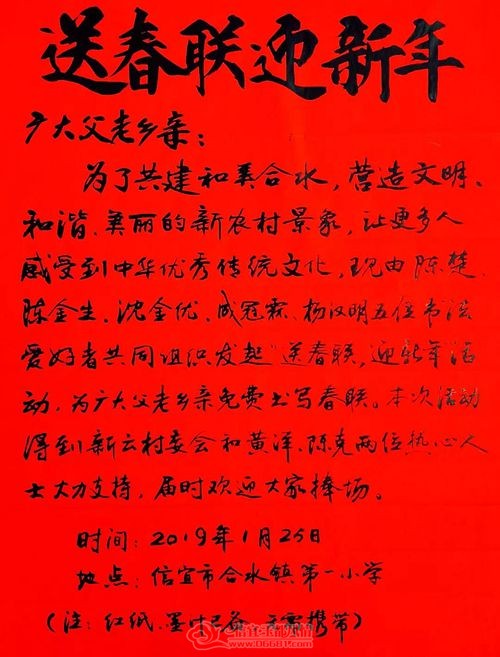 送春联迎新年
广大父老乡亲：
为了共建和美合水，营造文明、
和谐、美丽的新农村景象，让更多人
感受到中华优秀传统文化，现由陈楚、
陈金生、沈金优、成冠霖、杨汉明五位书法
爱好者共同组织发起“送春联，迎新年活
动，为广大父老乡亲免费书写春联。本次活动
得到新云村委会和黄洋、陈克两位热心人
士大力支持，届时欢迎大家捧场。
时间：2019年1月25日
地点：信宜市合水镇第一小学
（注：红纸、墨汁已备，无需携带）